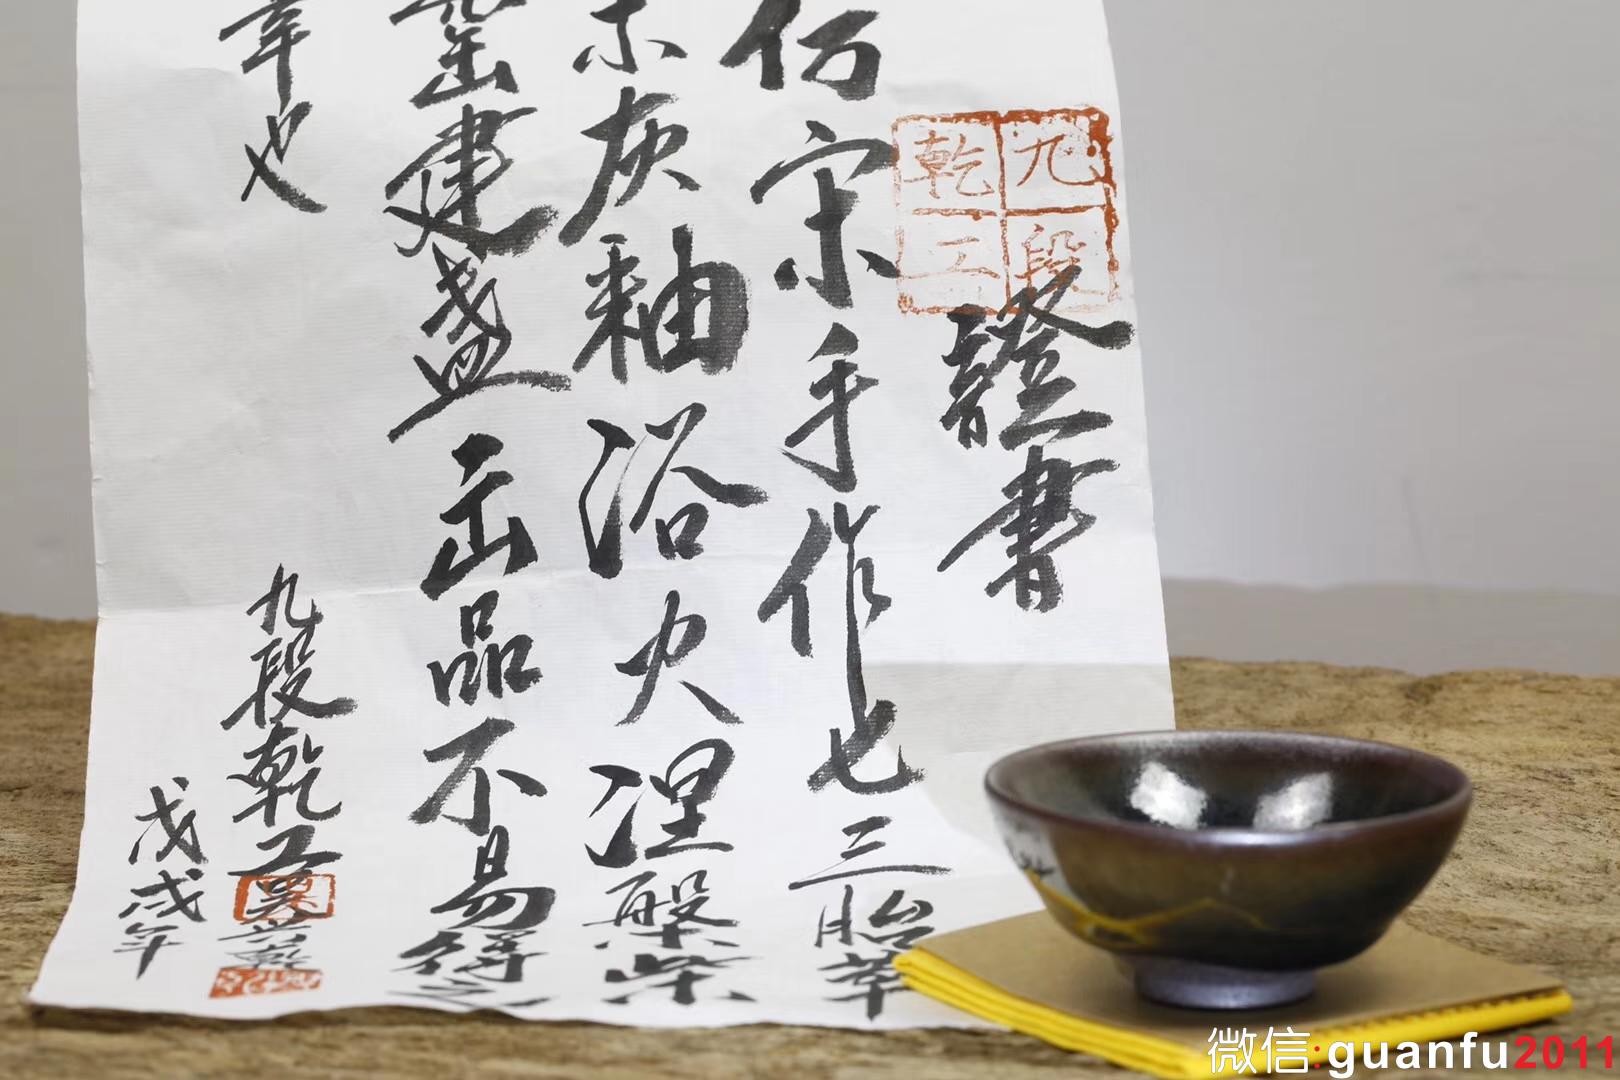 九段
乾工
證書
仿宋手作七三胎萃
木灰釉浴火涅槃柴
窑建盏出品不易得之
幸也
九段乾工
戊戌年
微信:guanfu2011